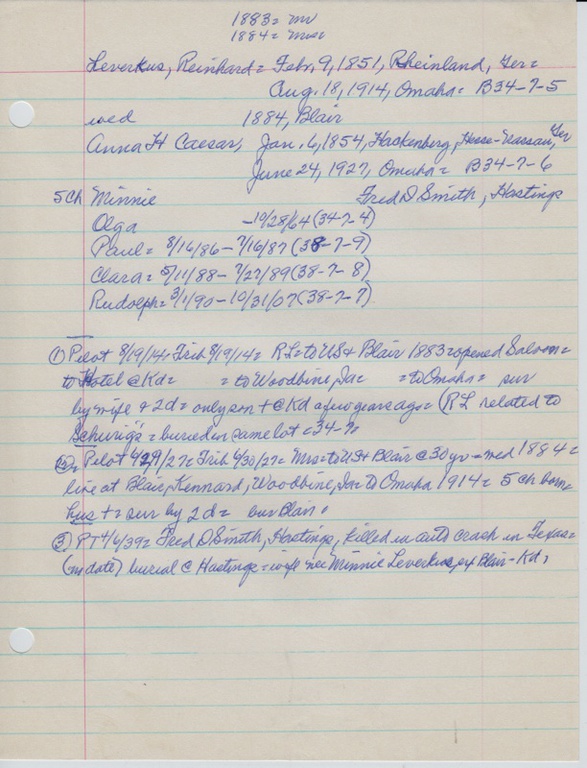 1883 = Mr
1884 = Mrs
Leverkus, Reinhard = Feb. 9, 1851, Rheinland, Ger =
Aug. 18, 1914, Omaha = B34-7-5
wed 1884, Blair
Anna H Caesar, Jan. 6, 1854, Hackenberg, Hesse-Nassau, Ger
June 24, 1927, Omaha = B34-7-6
5 Ch Minnie Fred D Smith, Hastings
Olga - 10/28/64 (34-7-4)
Paul = 8/16/86 - 7/16/87 (38-7-9)
Clara = 5/11/88 - 7/27/89 (38-7-8)
Rudolph = 3/1/90 - 10/31/07 (38-7-7)
① Pilot 8/19/14 = Trib 8/19/14 = RL = to US & Blair 1883 = opened Saloon =
to Hotel @ Kd = = to Woodbine, Ia = = to Omaha = sur
by wife + 2d = only son + @ Kd a few years ago = (RL related to
Schurig's = buried in same lot = 34-7)
② Pilot 6/29/27 = Trib 6/30/27 = Mrs = to US & Blair @ 30 yr = wed 1884 =
live at Blair, Kennard, Woodbine, Ia = to Omaha 1914 = 5 ch born
hus + = sur by 2 d = bur Blair.
③ PT 4/6/39 = Fred D Smith, Hastings, killed in auto crash in Texas =
(no date) burial @ Hastings = wife nee Minnie Leverkus, of Blair - Kd,